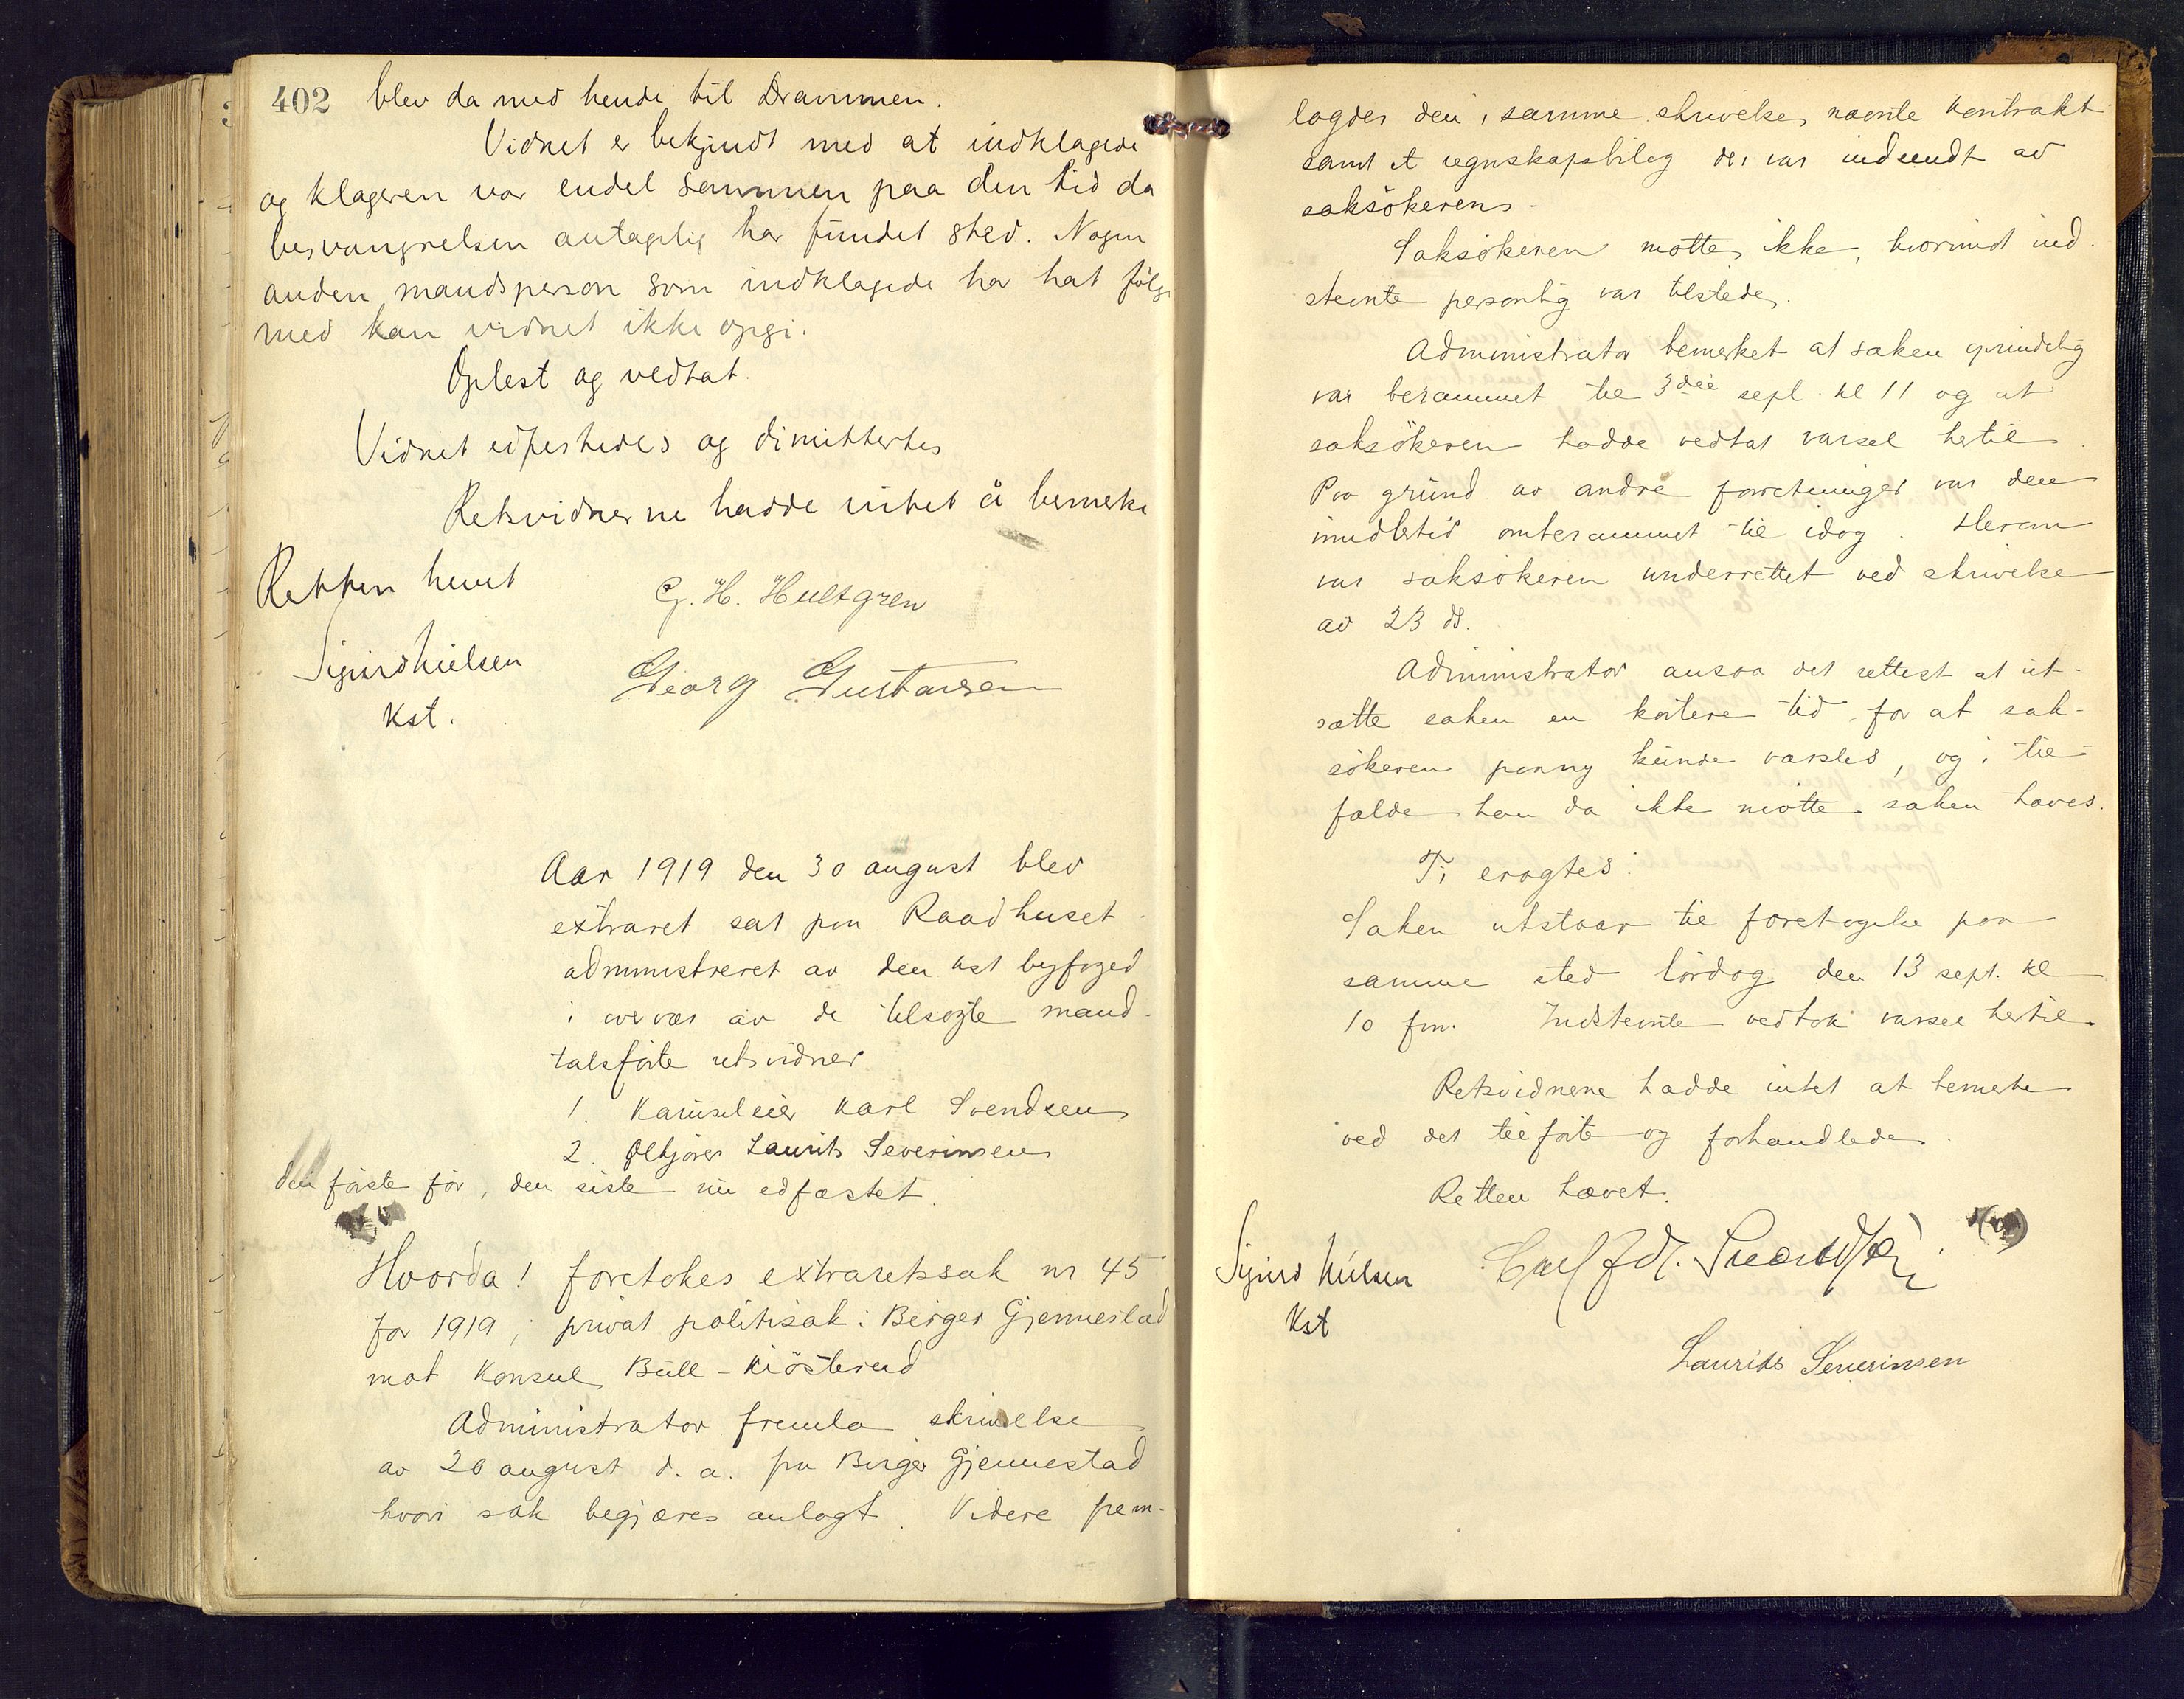 402 blev da med hende til Drammen.
Vidnet er bekjendt med at indklagede
og klageren var endel sammen paa den tid da
besvangrelsen antagelig har fundet sted. Nogen
anden mandsperson som indklagede har hat følge
med kan vidnet ikke opgi.
Oplest og vedtat.
Vidnet edfestedes og dimittertes
Retsvidnerne hadde intet å bemerke
Retten hevet
G. H. Hultgren
Sigurd Nielsen
Georg Gustavsen
Kst.
Aar 1919 den 30 august blev
extraret sat paa Raadhuset
administreret av den kst byfoged
i overvær av de tilsagte mand-
talsførte retsvidner
1. Karuseleier Karl Svendsen
2. Ølkjører Laurits Severinsen
den første før, den siste nu edfæstet.
Hvorda! foretokes extraretssak nr 45
for 1919, privat politisak: Birger Gjennestad
mot Konsul Bull-Kiøsterud
Administrator fremla skrivelse
av 20 august d. a. fra Birger Gjennestad
hvori sak begjæres anlagt. Videre frem-
lagdes den i samme skrivelse nævnte kontrakt
samt et regnskapsbilag der var indsendt av
saksökeren.
Saksökeren møtte ikke, hvorimot ind-
stevnte personlig var tilstede.
Administrator bemerket at saken oprindelig
var berammet til 3die sept. kl 11 og at
saksökeren hadde vedtat varsel hertil.
Paa grund av andre forretninger var den
imidlertid omberammet til idag. Herom
var saksökeren underrettet ved skrivelse
av 23 ds.
Administrator ansaa det rettest at ut-
sætte saken en kortere tid, for at sak-
sökeren paany kunde varsles, og i til-
fælde han da ikke møtte saken hæves.
Ti eragtes:
Saken utstaar til foretagelse paa
samme sted lørdag den 13 sept. kl
10 fm. Indstevnte vedtok varsel hertil.
Retsvidnene hadde intet at bemerke
ved det tilførte og forhandlede.
Retten hævet.
Sigurd Nielsen
Kst
Laurits Severinsen